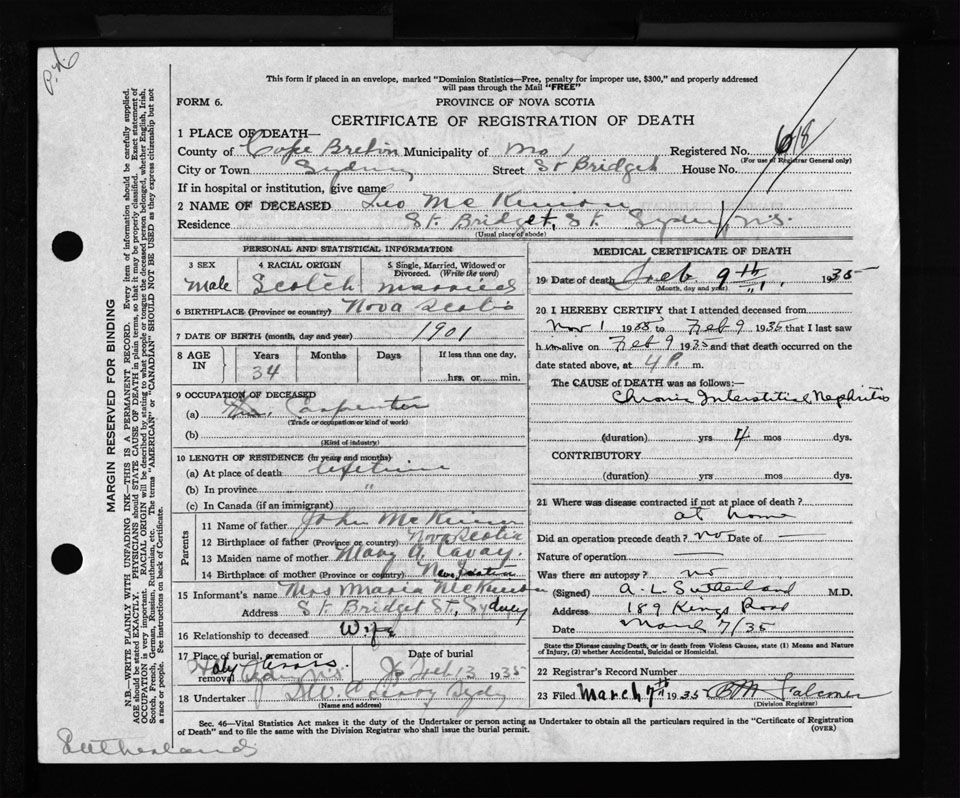 P.H.
This form if placed in an envelope, marked "Dominion Statistics—Free, penalty for improper use, $300," and properly addressed
will pass through the Mail "FREE"
FORM 6.
PROVINCE OF NOVA SCOTIA
CERTIFICATE OF REGISTRATION OF DEATH
1 PLACE OF DEATH—
County of Cape Breton Municipality of Registered No. 618
(For use of Registrar General only)
City or Town Sydney Street St Bridget House No.
If in hospital or institution, give name
2 NAME OF DECEASED Leo McKinnon
Residence St. Bridget, St. Sydney, N.S.
(Usual place of abode)
PERSONAL AND STATISTICAL INFORMATION
3 SEX 4 RACIAL ORIGIN 5 Single, Married, Widowed or Divorced. (Write the word)
male Scotch married
6 BIRTHPLACE (Province or country) Nova Scotia
7 DATE OF BIRTH (month, day and year) 1901
8 AGE IN Years Months Days If less than one day,
34 hrs. or min.
9 OCCUPATION OF DECEASED
(a) Carpenter
(Trade or occupation or kind of work)
(b)
(Kind of industry)
10 LENGTH OF RESIDENCE (in years and months)
(a) At place of death lifetime
(b) In province "
(c) In Canada (if an immigrant)
Parents
11 Name of father John McKinnon
12 Birthplace of father (Province or country) Nova Scotia
13 Maiden name of mother Mary A.
14 Birthplace of mother (Province or country) Nova Scotia
15 Informant's name Mrs Maria McKinnon
Address St Bridget St, Sydney
16 Relationship to deceased Wife
17 Place of burial, cremation or removal Date of burial
Holy Cross Sydney N.S. Feb 13 1935
18 Undertaker Sydney
(Name and address)
MEDICAL CERTIFICATE OF DEATH
19 Date of death Feb. 9th 1935
(Month, day and year)
20 I HEREBY CERTIFY that I attended deceased from
Nov 1 19 to Feb 9 1935 that I last saw
him alive on Feb 9 1935 and that death occurred on the
date stated above, at 4 P. m.
The CAUSE of DEATH was as follows:
Chronic Interstitial Nephritis
(duration) yrs 4 mos dys.
CONTRIBUTORY
(duration) yrs mos dys.
21 Where was disease contracted if not at place of death?
at home
Did an operation precede death? no Date of —
Nature of operation —
Was there an autopsy? no
(Signed) A. L. Sutherland M.D.
Address 189 Kings Road
Date March 7/35
State the Disease causing Death, or in death from Violent Causes, state (1) Means and Nature
of Injury, (2) whether Accidental, Suicidal or Homicidal.
22 Registrar's Record Number
23 Filed March 7th 1935 Falconer
(Division Registrar)
Sec. 46—Vital Statistics Act makes it the duty of the Undertaker or person acting as Undertaker to obtain all the particulars required in the "Certificate of Registration
of Death" and to file the same with the Division Registrar who shall issue the burial permit.
(OVER)
Sutherland
MARGIN RESERVED FOR BINDING
N.B.—WRITE PLAINLY WITH UNFADING INK—THIS IS A PERMANENT RECORD. Every item of information should be carefully supplied.
AGE should be stated EXACTLY. PHYSICIANS should STATE CAUSE OF DEATH in plain terms, so that it may be properly classified. Exact statement of
OCCUPATION is very important. RACIAL ORIGIN will be described by stating to what people or tongue the deceased person belonged, whether English, Irish,
Scotch, French, German, Russian, Ruthenian, etc. The terms "AMERICAN" or "CANADIAN" SHOULD NOT BE USED as they express citizenship but not
a race or people. See instructions on back of Certificate.